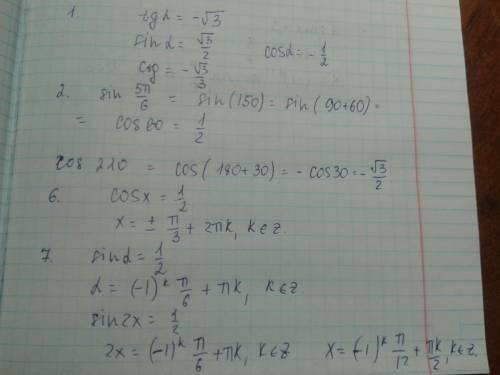 1. tg α = -√3
sin α = √3/2 cos α = - 1/2
ctg = - √3/3
2. sin 5π/6 = sin(150) = sin(90+60) =
= cos 60 = 1/2
cos 210 = cos(180+30) = - cos 30 = - √3/2
6. cos x = 1/2
x = ± π/3 + 2πk, k ∈ z.
7. sin α = 1/2
α = (-1)^k π/6 + πk, k ∈ z
sin 2x = 1/2
2x = (-1)^k π/6 + πk, k ∈ z x = (-1)^k π/12 + πk/2, k ∈ z.